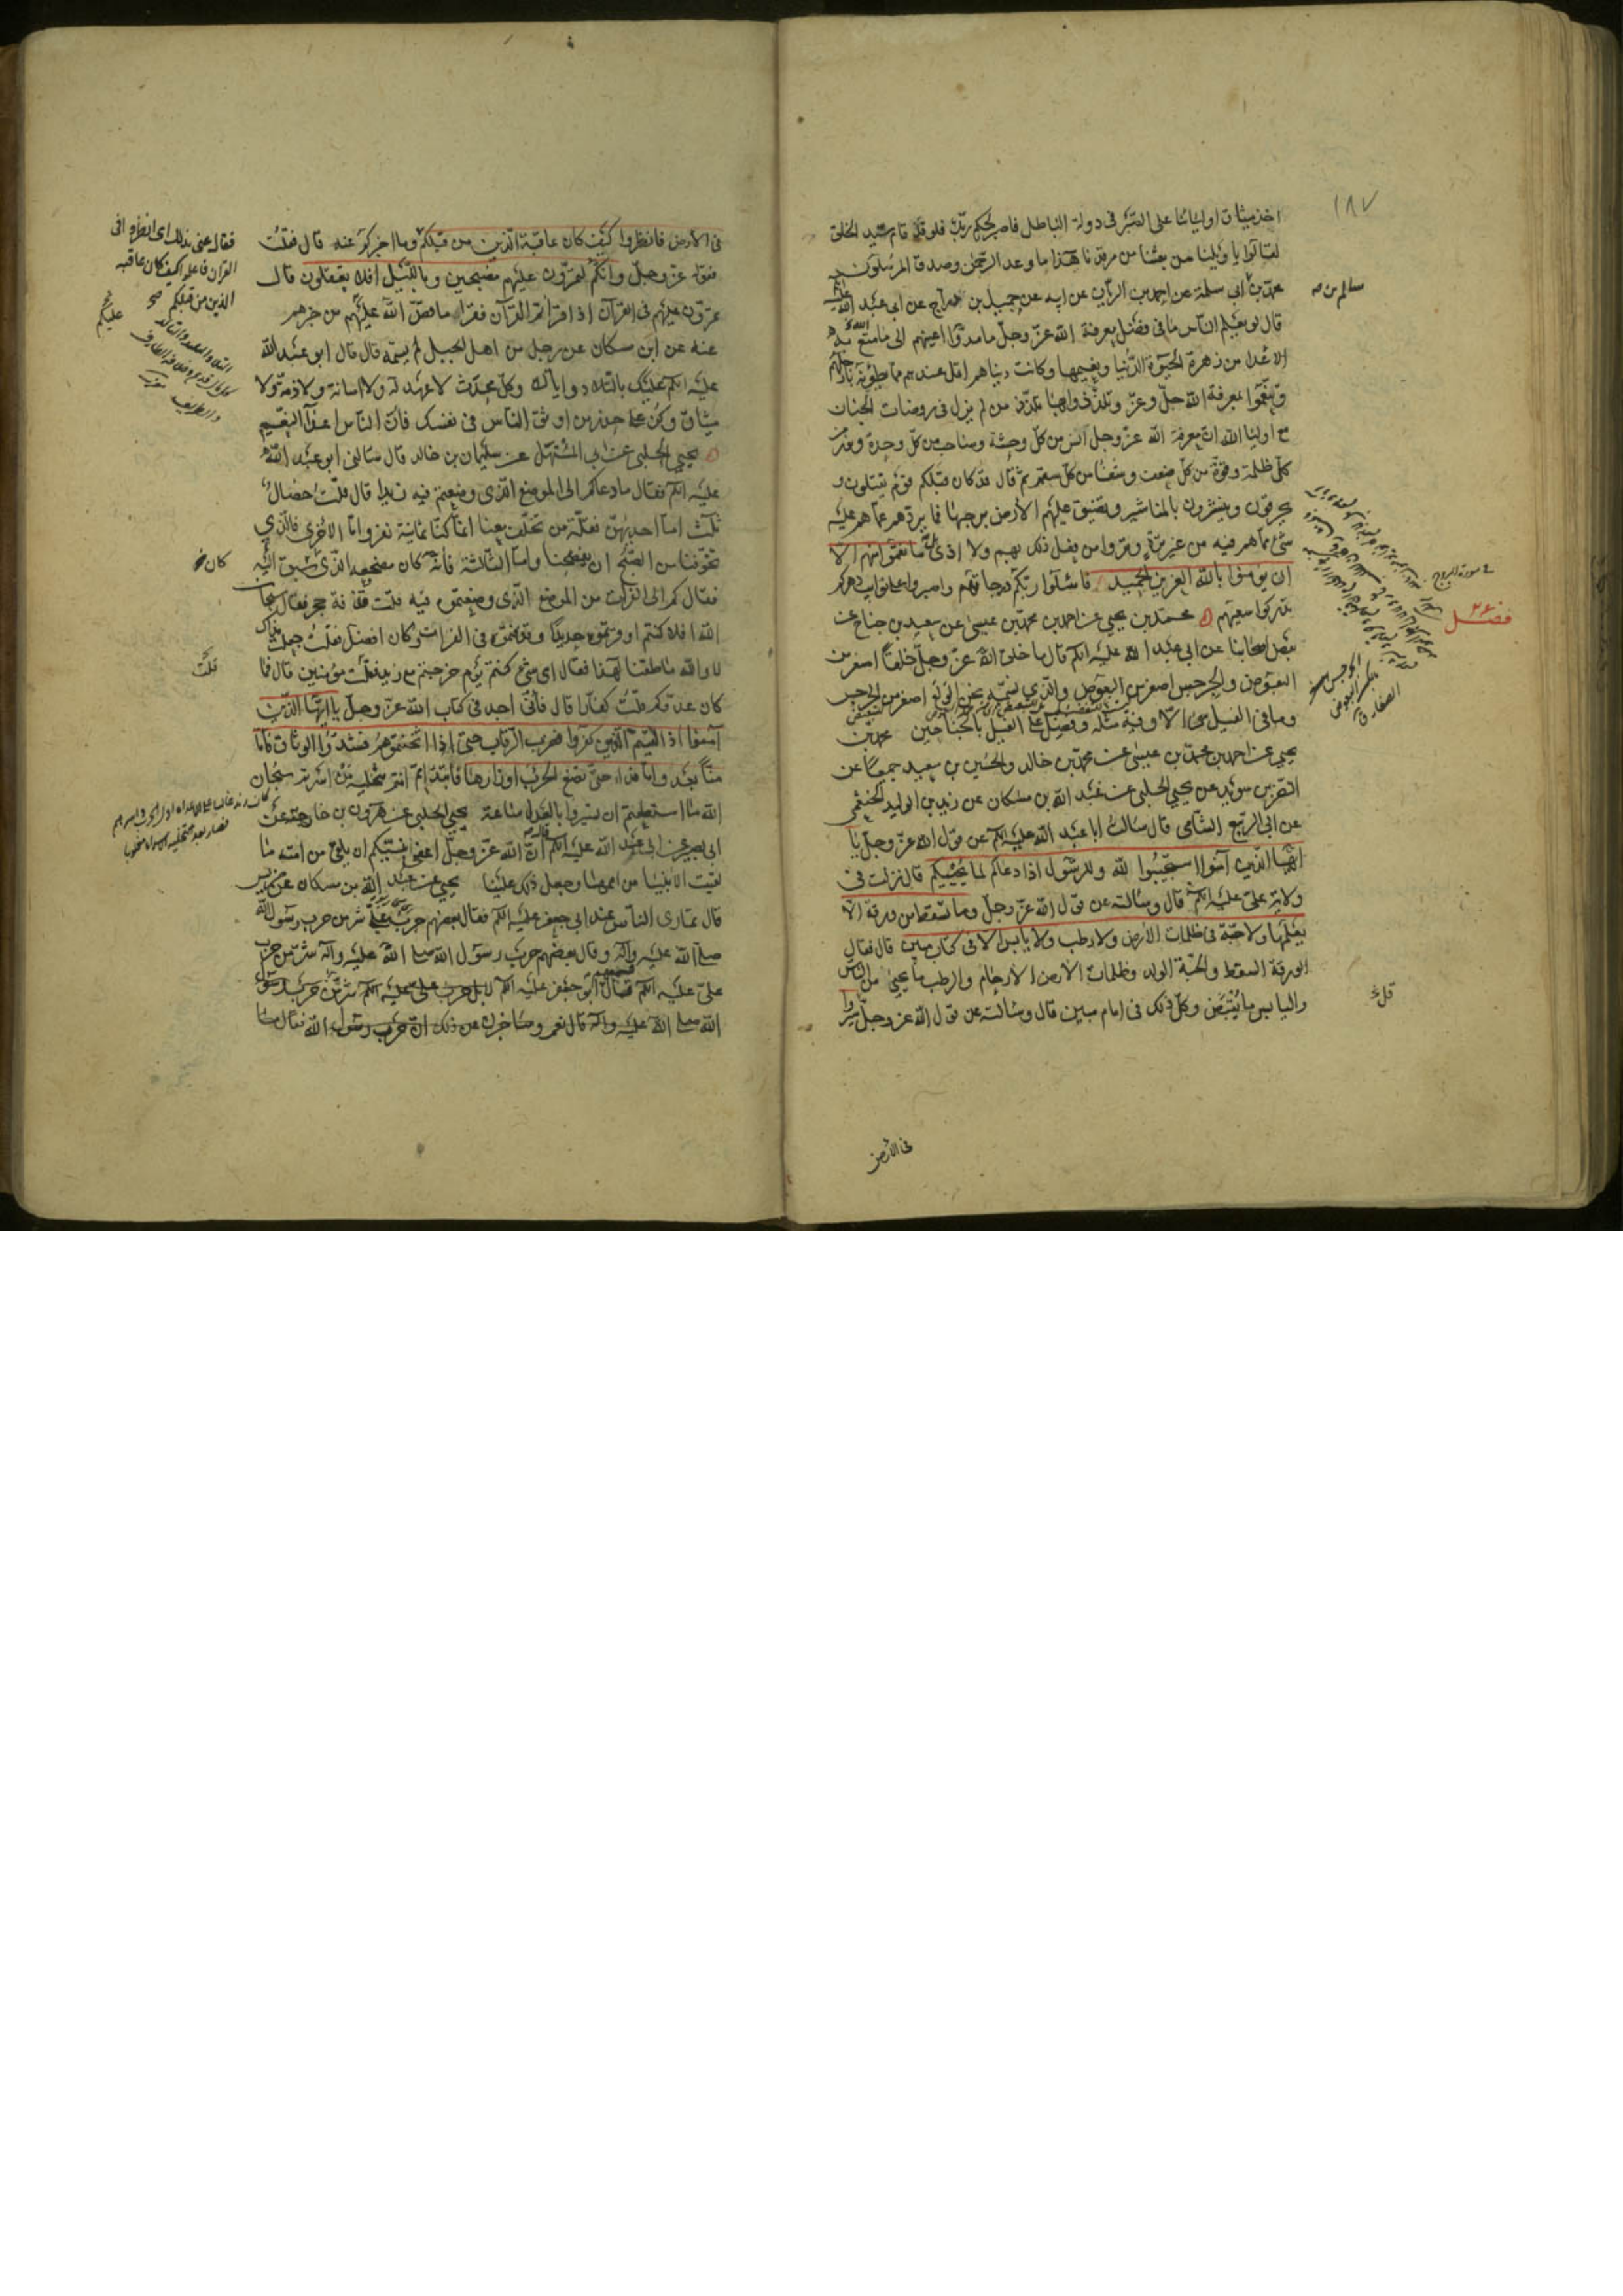 ١٨٧
اخذ ميثاق اوليائنا على الصبر في دولة الباطل فاصبر لحكم ربك فلو قد قام سيد الخلق
لقالوا يا ويلنا من بعثنا من مرقدنا هذا ما وعد الرحمن وصدق المرسلون
محمد بن ابي سلمة عن احمد بن الريان عن ابيه عن جميل بن دراج عن ابي عبد الله
قال لو يعلم الناس ما في فضل معرفة الله عز وجل ما مدوا اعينهم الى ما متع به
الاعداء من زهرة الحيوة الدنيا ونعيمها وكانت دنياهم اقل عندهم مما يطؤنه بارجلهم
ولنعموا بمعرفة الله جل وعز وتلذذوا بها تلذذ من لم يزل في روضات الجنان
مع اولياء الله ان معرفة الله عز وجل انس من كل وحشة وصاحب من كل وحدة ونور من
كل ظلمة وقوة من كل ضعف وشفاء من كل سقم ثم قال قد كان قبلكم قوم يقتلون و
يحرقون وينشرون بالمناشير وتضيق عليهم الارض برحبها فما يردهم عما هم عليه
شئ مما هم فيه من غير ترة وتروا من فعل ذلك بهم ولا اذى بل ما نقموا منهم الا
ان يؤمنوا بالله العزيز الحميد فاسئلوا ربكم درجاتهم واصبروا على نوايب دهركم
تدركوا سعيهم محمد بن يحيى عن احمد بن محمد بن عيسى عن سعيد بن جناح عن
بعض اصحابنا عن ابي عبد الله عليه السلام قال ما خلق الله عز وجل خلقا اصغر من
البعوض والجرجس اصغر من البعوض والذي نسميه نحن الولع اصغر من الجرجس
وما في الفيل شئ الا وفيه مثله وفضل على الفيل بالجناحين محمد بن
يحيى عن احمد بن محمد بن عيسى عن محمد بن خالد والحسين بن سعيد جميعا عن
النضر بن سويد عن يحيى الحلبي عن عبد الله بن مسكان عن زيد بن الوليد الخثعمي
عن ابي الربيع الشامي قال سالت ابا عبد الله عليه السلام عن قول الله عز وجل يا
ايها الذين آمنوا استجيبوا لله وللرسول اذا دعاكم لما يحييكم قال نزلت في
ولاية علي عليه السلام قال وسالته عن قول الله عز وجل وما تسقط من ورقة الا
يعلمها ولا حبة في ظلمات الارض ولا رطب ولا يابس الا في كتاب مبين قال فقال
الورقة السقط والحبة الولد وظلمات الارض الارحام والرطب ما يحيى من الناس
واليابس ما يقبض وكل ذلك في امام مبين قال وسالته عن قول الله عز وجل سيروا
سالم من
سورة البروج
فضل
في الارض
في الارض فانظروا كيف كان عاقبة الذين من قبلكم وما اخبركم عنه قال فقلت
فقوله عز وجل وانكم لتمرون عليهم مصبحين وبالليل افلا تعقلون قال
تمرون عليهم في القرآن اذا قراتم القرآن فقرا ما قص الله عليكم من خبرهم
عنه عن ابن مسكان عن رجل من اهل الجبل لم يسمه قال قال ابو عبد الله
عليه السلام عليك بالتلاد واياك وكل محدث لا عهد له ولا امانة ولا ذمة ولا
ميثاق وكن على حذر من اوثق الناس في نفسك فان الناس اعداء النعم
يحيى الحلبي عن ابي المستهل عن سليمان بن خالد قال سالني ابو عبد الله
عليه السلام فقال ما دعاكم الى الموضع الذي وضعتم فيه زيدا قال قلت خصال
ثلث اما احديهن فقلة من تخلف معنا انما كنا ثمانية نفر واما الاخرى فالذي
تخوفنا من الصبح ان يفضحنا واما الثالثة فانه كان مضجعه الذي سبق اليه
فقال كم الى الفرات من الموضع الذي وضعتموه فيه قلت قذفة حجر فقال سبحان
الله افلا كنتم اوقرتموه حديدا وقذفتموه في الفرات وكان افضل فقلت جعلت فداك
لا والله ما طقنا لهذا فقال اى شئ كنتم يوم خرجتم مع زيد فقلت مؤمنين قال فما
كان عدوكم قلت كفارا قال فاني اجد في كتاب الله عز وجل يا ايها الذين
آمنوا اذا لقيتم الذين كفروا فضرب الرقاب حتى اذا اثخنتموهم فشدوا الوثاق فاما
منا بعد واما فداء حتى تضع الحرب اوزارها فابتداتم انتم بتخلية من اسرتم سبحان
الله ما استطعتم ان تسيروا بالعدل ساعة يحيى الحلبي عن هرون بن خارجة عن
ابي بصير عن ابي عبد الله عليه السلام قال ان الله عز وجل اعفى نبيكم ان يلقى من امته ما
لقيت الانبيا من اممها وجعل ذلك علينا يحيى عن عبد الله بن مسكان عن ضريس
قال تمارى الناس عند ابي جعفر عليه السلام فقال بعضهم حرب علي شر من حرب رسول الله
صلى الله عليه وآله وقال بعضهم حرب رسول الله صلى الله عليه وآله شر من حرب
علي عليه السلام فقال ابو جعفر عليه السلام لا بل حرب علي عليه السلام شر من حرب رسول
الله صلى الله عليه وآله قال نعم وساخبرك عن ذلك ان حرب رسول الله
فقال عنى بذلك اى انظروا في
القرآن فاعلموا كيف كان عاقبة
الذين من قبلكم صح
عليكم
كان
قلت